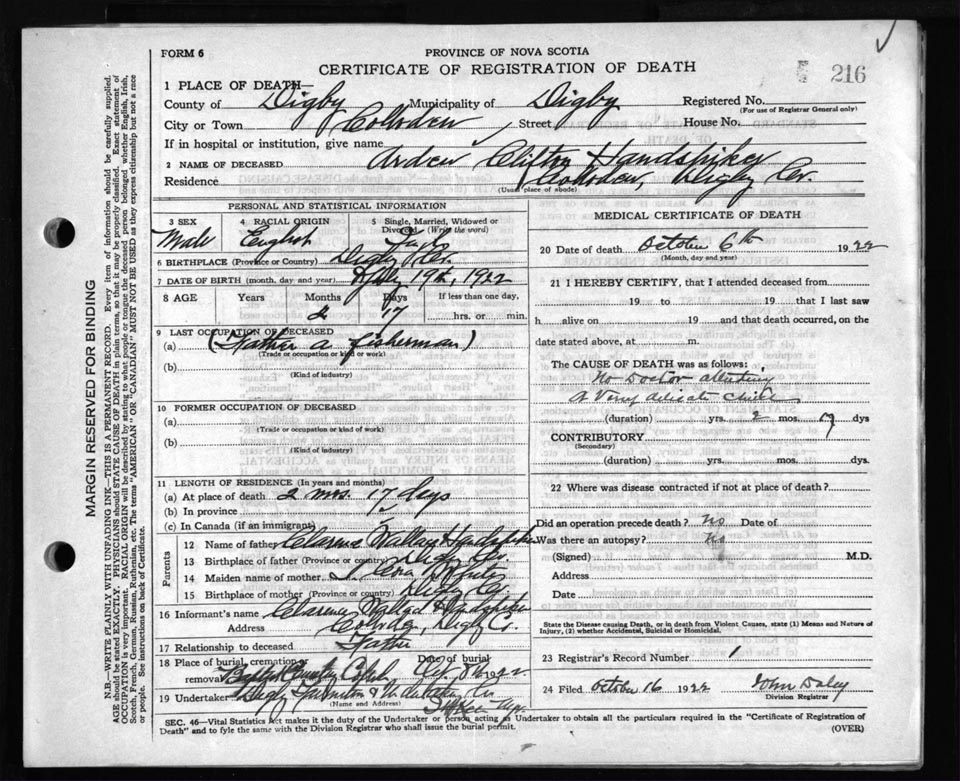 FORM 6
PROVINCE OF NOVA SCOTIA
CERTIFICATE OF REGISTRATION OF DEATH
216
1 PLACE OF DEATH—
County of Digby Municipality of Digby Registered No.
(For use of Registrar General only)
City or Town Street House No.
If in hospital or institution, give name
2 NAME OF DECEASED Clifton Handspiker
Residence Digby Co.
(Usual place of abode)
PERSONAL AND STATISTICAL INFORMATION
3 SEX 4 RACIAL ORIGIN 5 Single, Married, Widowed or
Divorced (Write the word)
Male English
6 BIRTHPLACE (Province or Country) Digby Co.
7 DATE OF BIRTH (month, day and year) 19th, 1922
8 AGE Years Months Days If less than one day,
2 17 hrs. or min.
9 LAST OCCUPATION OF DECEASED
(a) (Father a fisherman)
(Trade or occupation or kind or work)
(b)
(Kind of industry)
10 FORMER OCCUPATION OF DECEASED
(a)
(Trade or occupation or kind of work)
(b)
(Kind of industry)
11 LENGTH OF RESIDENCE (In years and months)
(a) At place of death 2 mos. 17 days
(b) In province
(c) In Canada (if an immigrant)
Parents
12 Name of father Clarence Wallace Handspiker
13 Birthplace of father (Province or country) Digby Co.
14 Maiden name of mother
15 Birthplace of mother (Province or country) Digby Co.
16 Informant's name Clarence Wallace Handspiker
Address Digby Co.
17 Relationship to deceased Father
18 Place of burial, cremation Date of burial
removal
19 Undertaker
(Name and Address)
MEDICAL CERTIFICATE OF DEATH
20 Date of death October 6th 1922
(Month, day and year)
21 I HEREBY CERTIFY, that I attended deceased from
19 to 19 that I last saw
h alive on 19 and that death occurred, on the
date stated above, at m.
The CAUSE OF DEATH was as follows:
No Doctor attending
A Very delicate Child
(duration) yrs. 2 mos. 17 dys
CONTRIBUTORY
(Secondary)
(duration) yrs. mos. dys.
22 Where was disease contracted if not at place of death?
Did an operation precede death? No Date of
Was there an autopsy? No
(Signed) M.D.
Address
Date
State the Disease causing Death, or in death from Violent Causes, state (1) Means and Nature of
Injury, (2) whether Accidental, Suicidal or Homicidal.
23 Registrar's Record Number 1
24 Filed October 16 1922 John Daley
Division Registrar
SEC. 46—Vital Statistics Act makes it the duty of the Undertaker or person acting as Undertaker to obtain all the particulars required in the "Certificate of Registration of
Death" and to fyle the same with the Division Registrar who shall issue the burial permit. (OVER)
MARGIN RESERVED FOR BINDING
N.B.—WRITE PLAINLY WITH UNFADING INK—THIS IS A PERMANENT RECORD. Every item of information should be carefully supplied.
AGE should be stated EXACTLY. PHYSICIANS should STATE CAUSE OF DEATH in plain terms, so that it may be properly classified. Exact statement of
OCCUPATION is very important. RACIAL ORIGIN will be described by stating to what people or tongue the deceased person belonged whether English, Irish,
Scotch, French, German, Russian, Ruthenian, etc. The terms "AMERICAN" or "CANADIAN" MUST NOT BE USED as they express citizenship but not a race
or people. See instructions on back of Certificate.